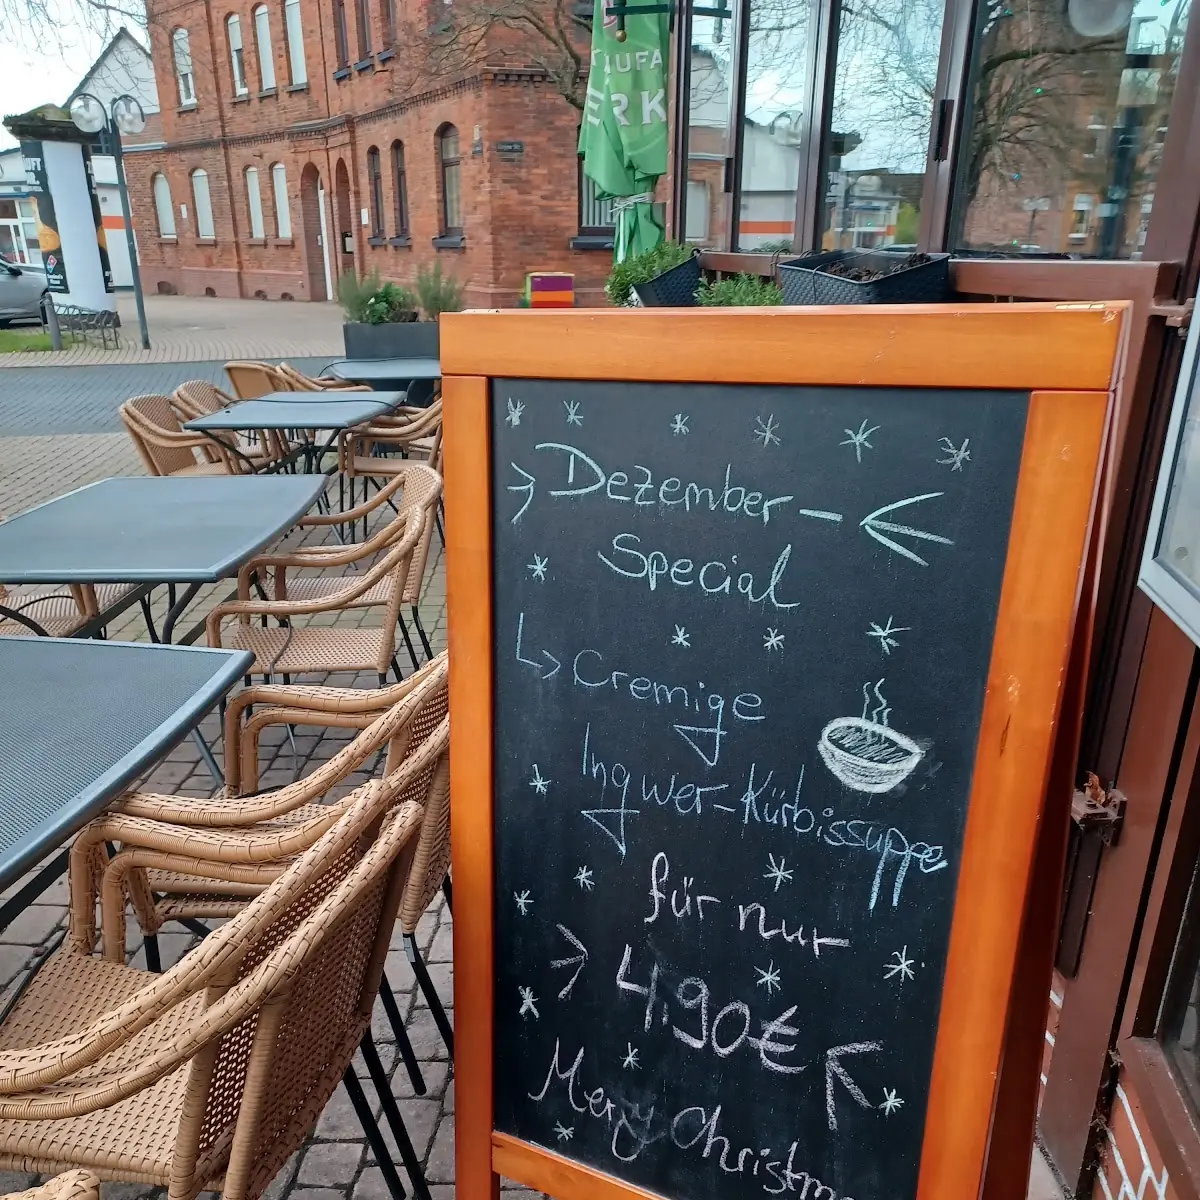 AUFA
ERK
Dezember-
Special
Cremige
Ingwer-Kürbissuppe
für nur
4,90€
Merry Christm